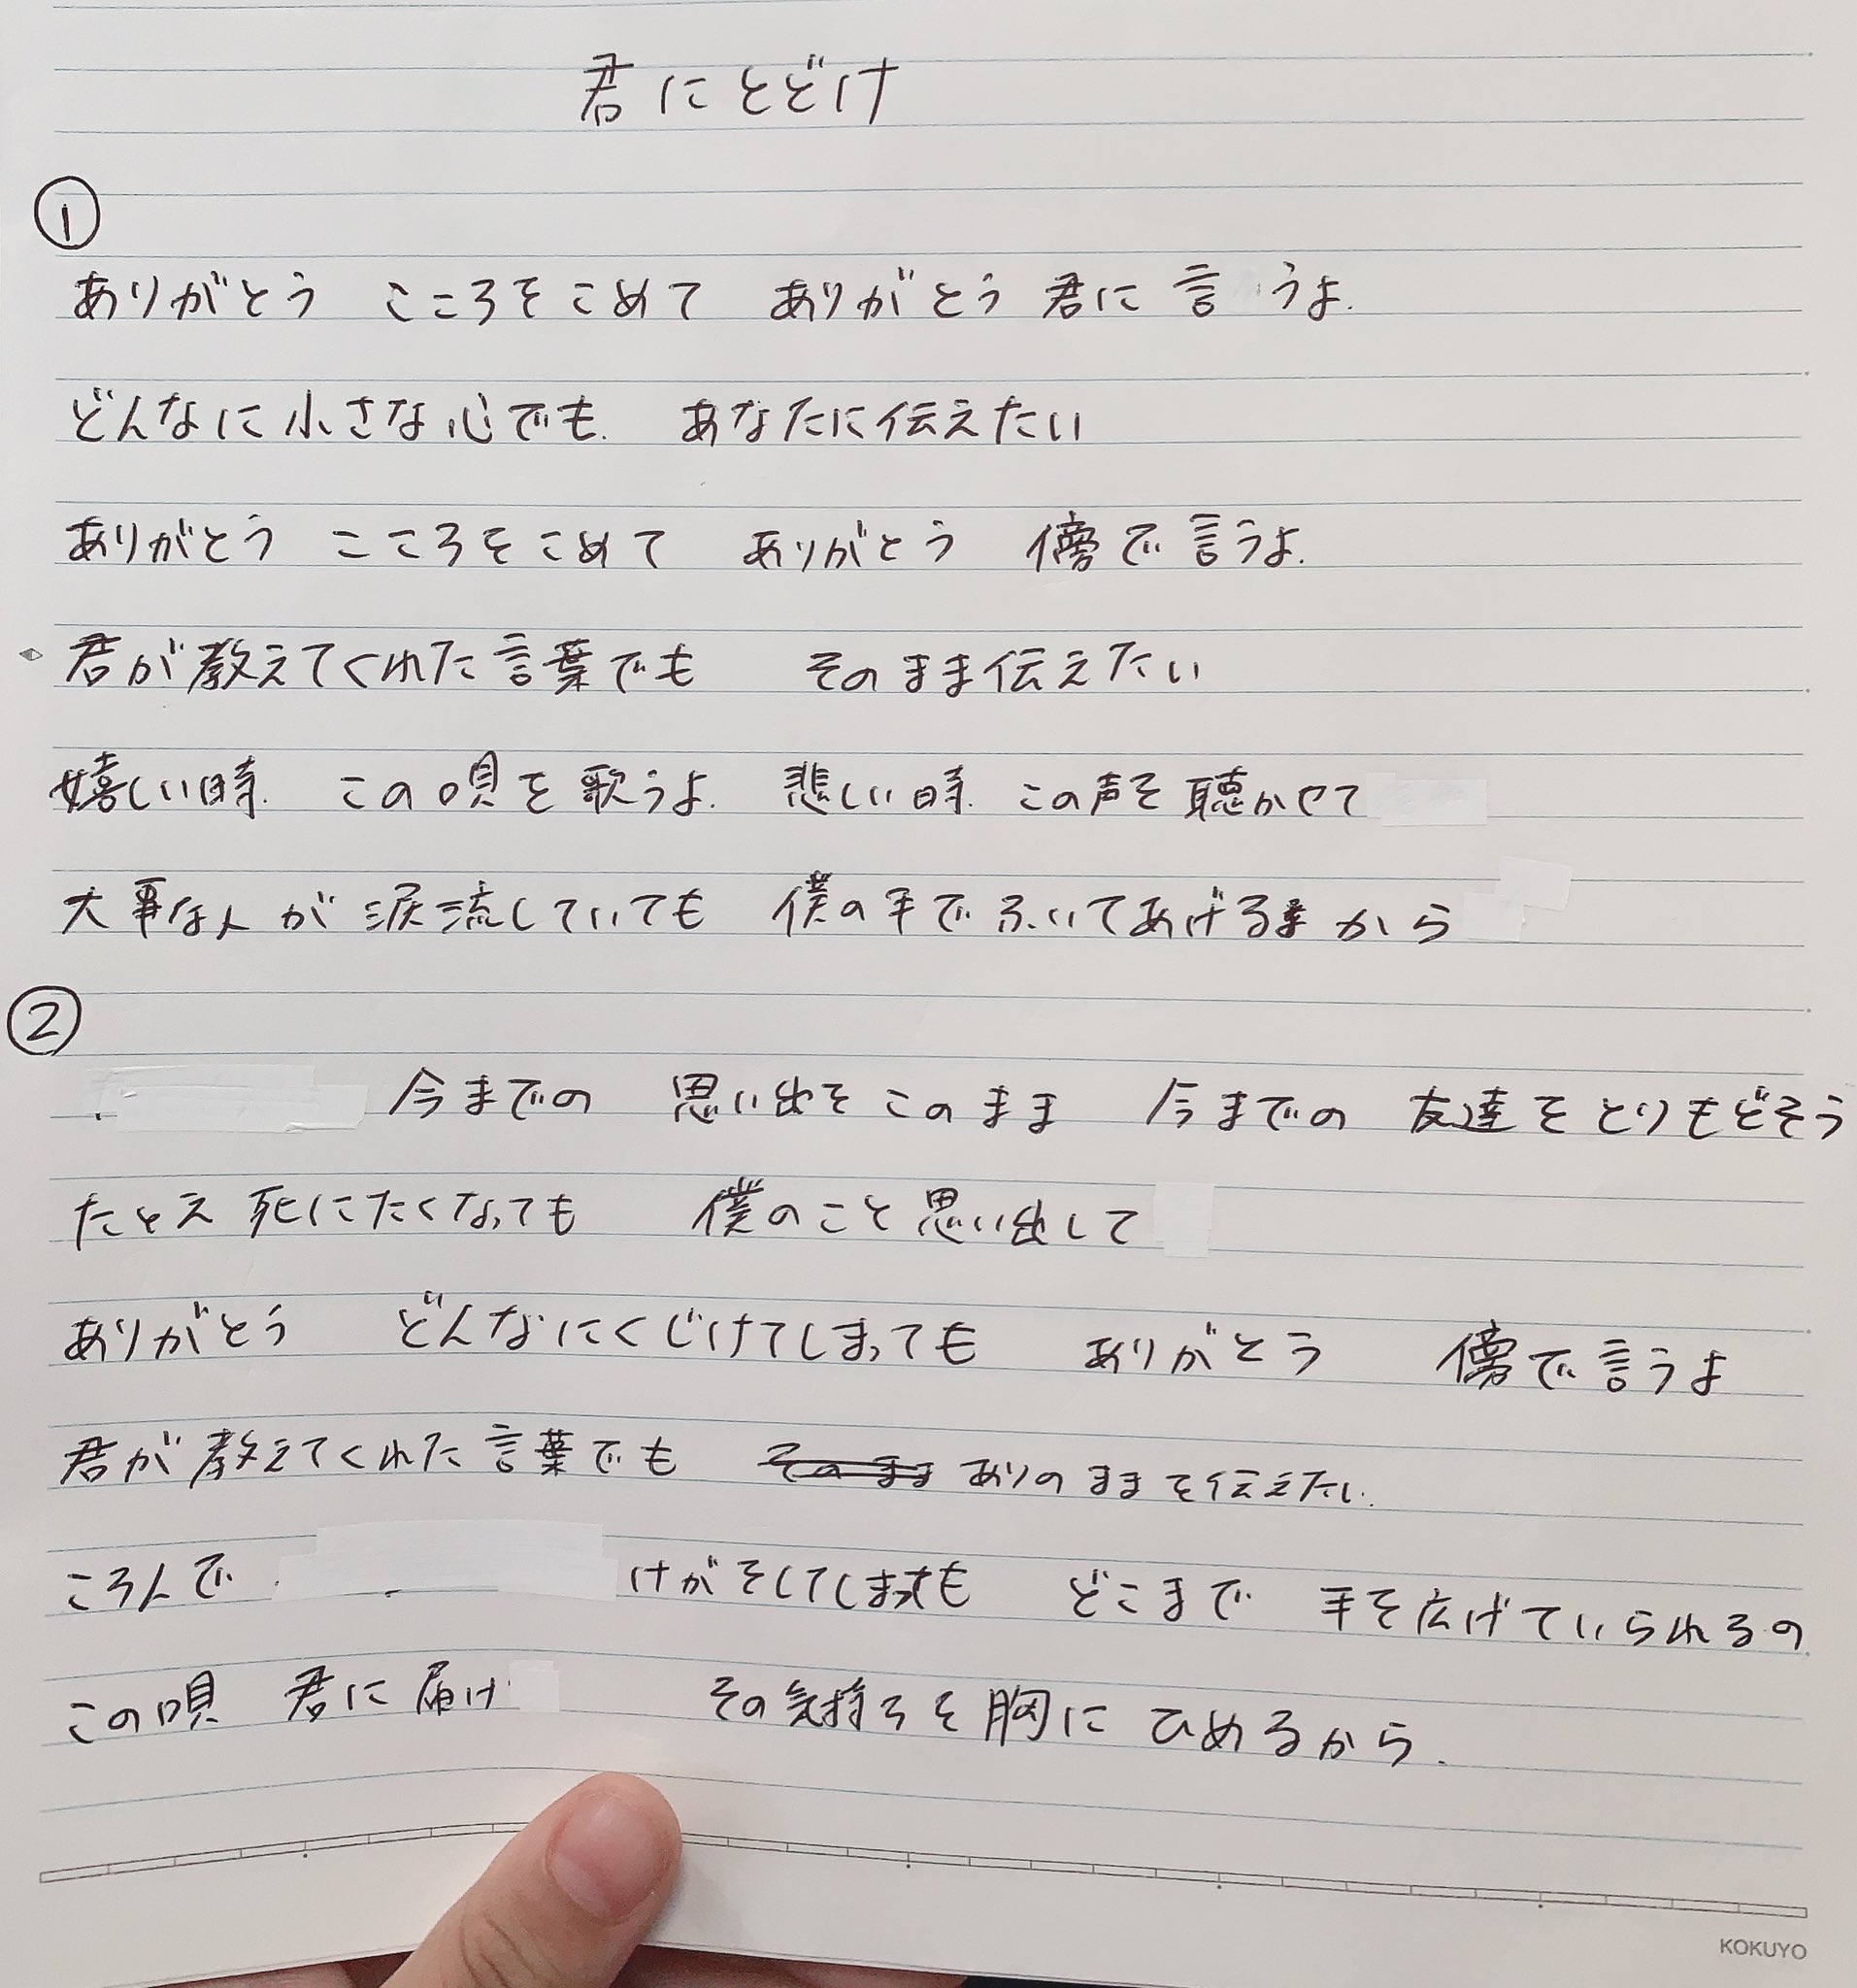 君にとどけ
①
ありがとう こころをこめて ありがとう 君に 言うよ.
どんなに小さな心でも. あなたに伝えたい
ありがとう こころをこめて ありがとう 傍で言うよ.
君が教えてくれた言葉でも そのまま伝えたい
嬉しい時. この唄を歌うよ. 悲しい時. この声を聴かせて
大事な人が涙流していても 僕の手でふいてあげるから
②
今までの 思い出をこのまま 今までの 友達をとりもどそう
たとえ死にたくなっても 僕のこと思い出して
ありがとう どんなにくじけてしまっても ありがとう 傍で言うよ
君が教えてくれた言葉でも そのまま ありのままを伝えたい.
ころんで けがをしてしまっても どこまで 手を広げていられるの
この唄 君に届け その気持ちを胸に ひめるから.
KOKUYO